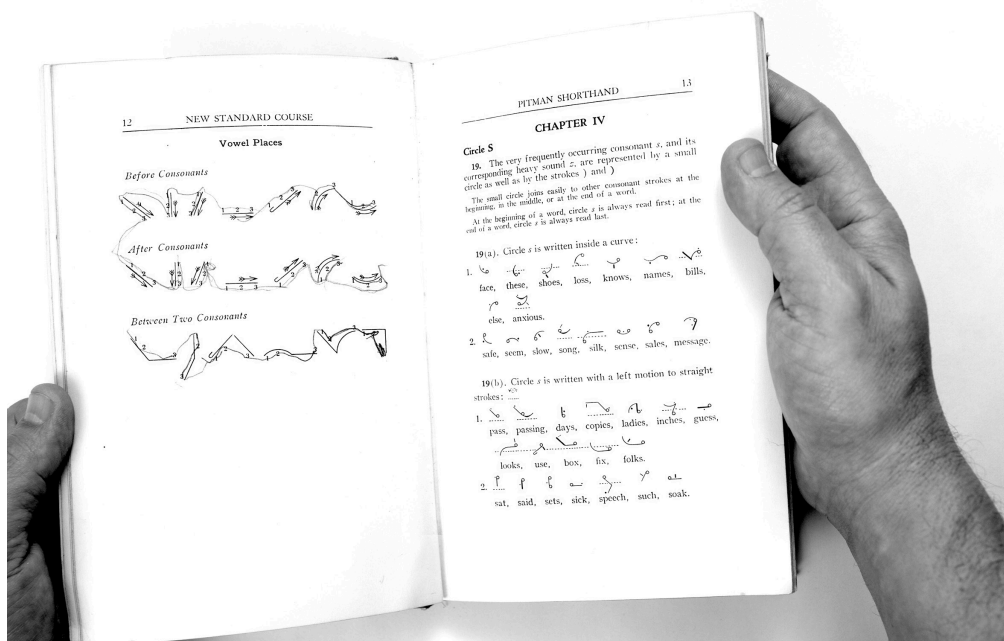 12 NEW STANDARD COURSE
Vowel Places
Before Consonants
After Consonants
Between Two Consonants
PITMAN SHORTHAND 13
CHAPTER IV
Circle S
19. The very frequently occurring consonant s, and its
corresponding heavy sound z, are represented by a small
circle as well as by the strokes ) and )
The small circle joins easily to other consonant strokes at the
beginning, in the middle, or at the end of a word.
At the beginning of a word, circle s is always read first; at the
end of a word, circle s is always read last.
19(a). Circle s is written inside a curve:
1.
face, these, shoes, loss, knows, names, bills,
else, anxious.
2.
safe, seem, slow, song, silk, sense, sales, message.
19(b). Circle s is written with a left motion to straight
strokes:
1.
pass, passing, days, copies, ladies, inches, guess,
looks, use, box, fix, folks.
2.
sat, said, sets, sick, speech, such, soak.